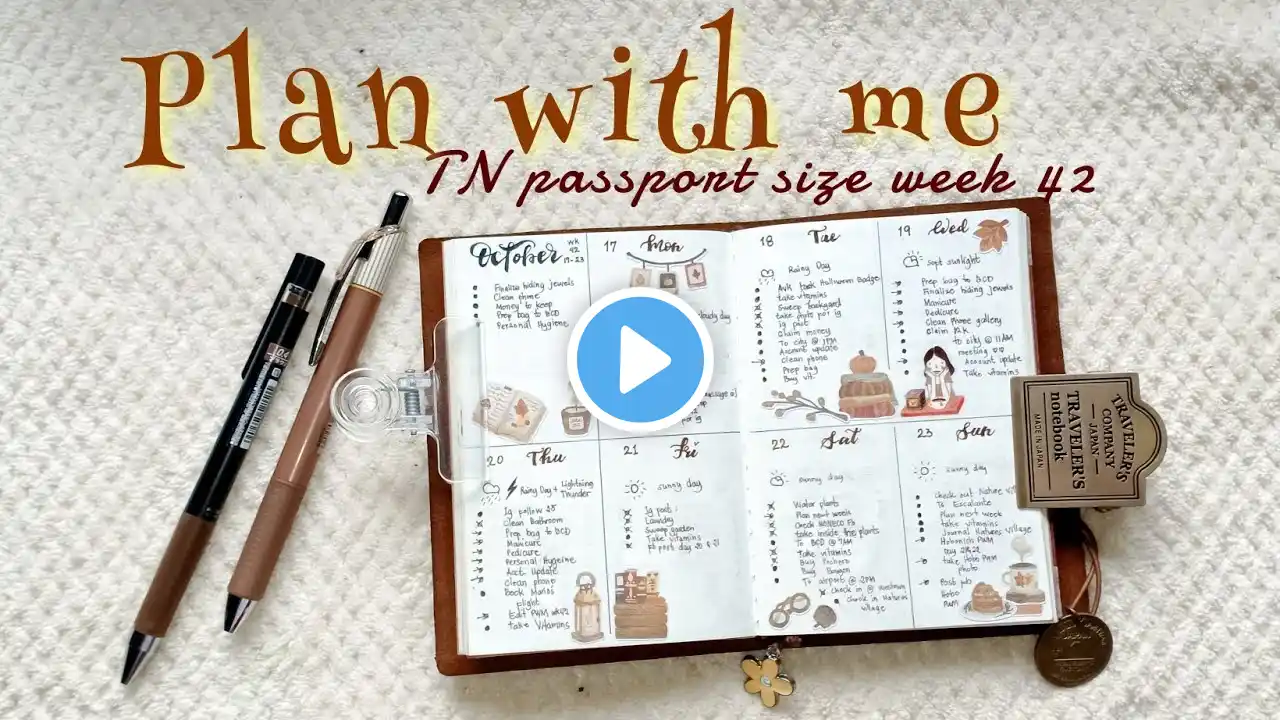 Plan with me
TN passport size week 42
October
wk
42
17-23
Finalize hiding jewels
Clean phone
Money to keep
Prep bag to BCD
Personal Hygiene
17 Mon
cloudy day
18 Tue
Rainy Day
Halloween Badge
take vitamins
Sweep backyard
take photo for ig
ig post
Claim money
To city @ 1PM
Account update
Clean phone
Prep bag
Buy vit.
19 Wed
soft sunlight
Prep bag to BCD
Finalize hiding jewels
Manicure
Pedicure
Clean Phone gallery
Claim
to city @ 11AM
meeting
Account update
Take vitamins
20 Thu
Rainy Day + Lightning
Thunder
Ig follow
Clean Bathroom
Prep bag to BCD
Manicure
Pedicure
Personal Hygiene
Acct Update
Clean phone
Book Manila
flight
Edit PWM wk42
take Vitamins
21 Fri
sunny day
Ig post
Laundry
Sweep garden
Take vitamins
post day 20 & 21
22 Sat
sunny day
Water plants
Plan next week
Check
take inside the plants
To BCD @ 7AM
Take vitamins
Buy
Buy
To airport @ 2PM
check in @
check in Natures
village
23 Sun
sunny day
check out Nature Vill
To Escalante
Plan next week
take vitamins
Journal Natures Village
Hobonichi PWM
Day
take Hobo PWM
photo
Post
Hobo
PWM
TRAVELER'S
COMPANY
JAPAN
TRAVELER'S
notebook
MADE IN JAPAN